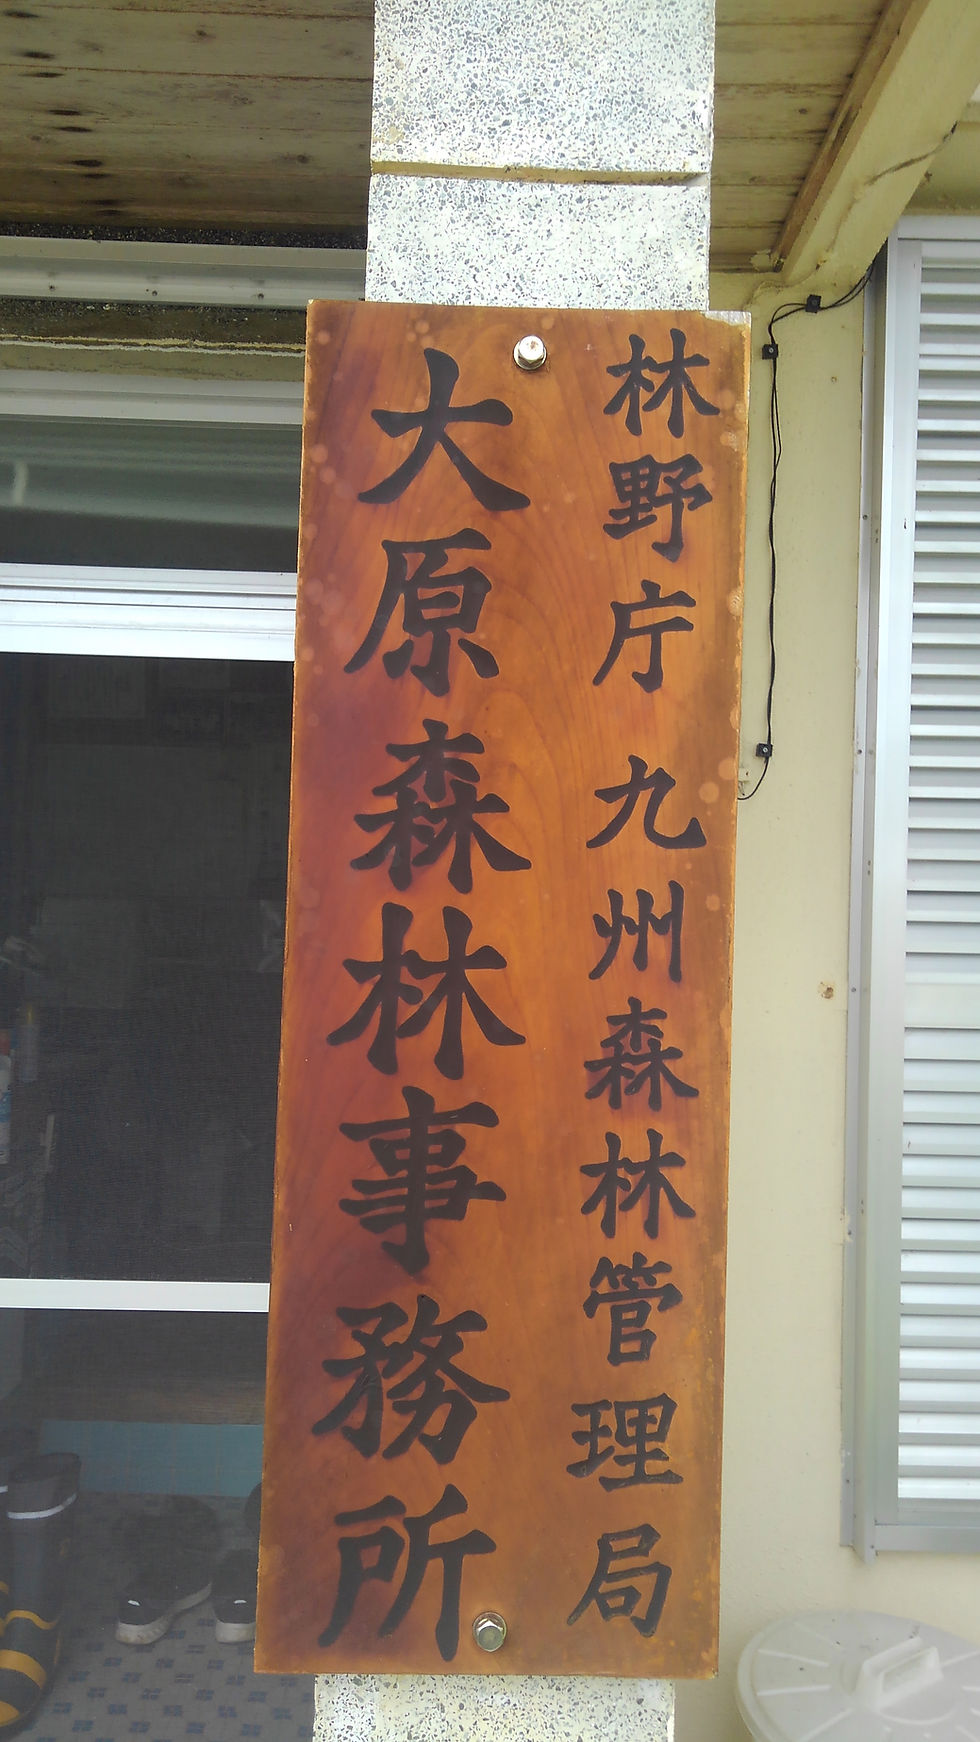 林野庁 九州森林管理局
大原森林事務所